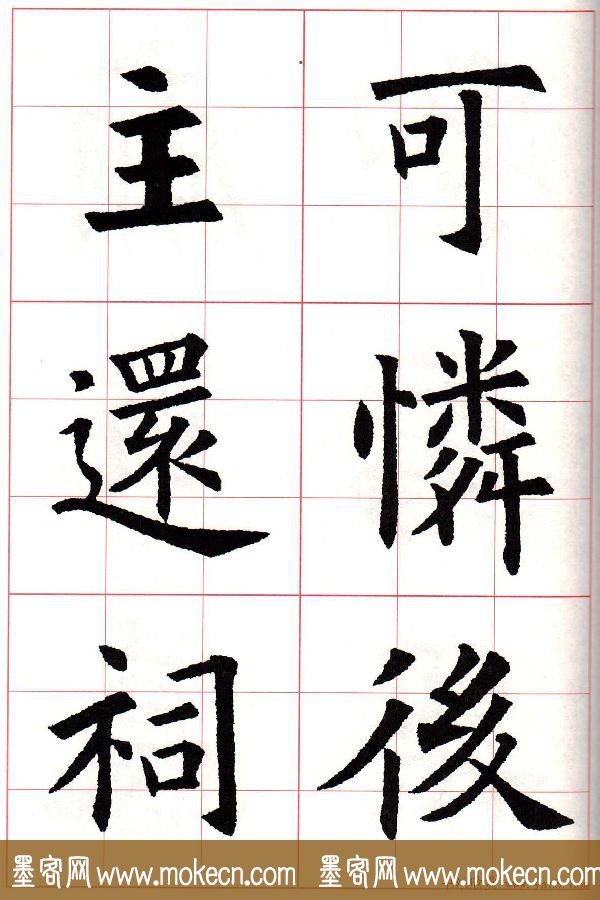 可憐後
主還祠
墨客网 www.mokecn.com 墨客网 www.mokecn.com